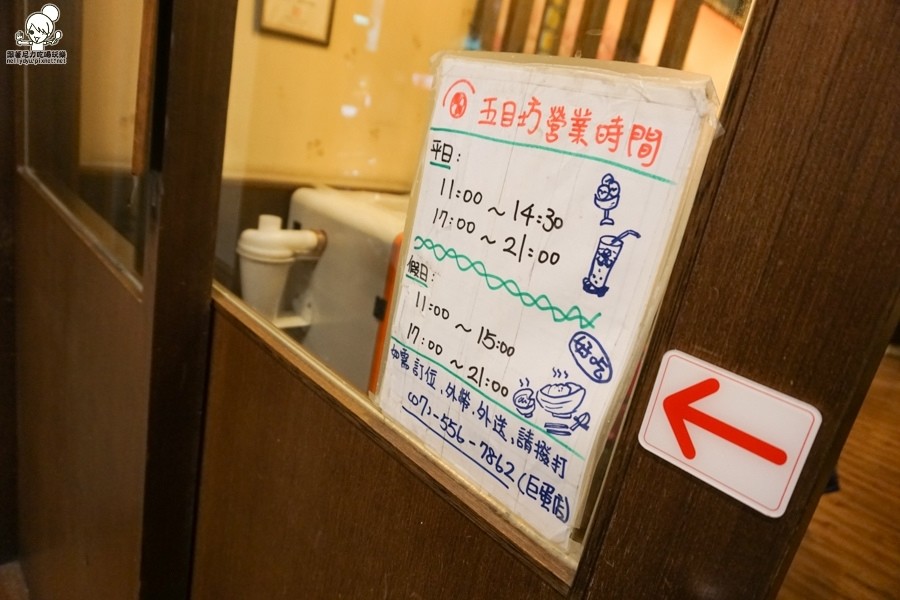 跟著尼力吃喝玩樂
nellydyu.pixnet.net
五目坊營業時間
平日:
11:00 ~ 14:30
17:00 ~ 21:00
假日:
11:00 ~ 15:00
17:00 ~ 21:00
好吃
如需訂位、外帶、外送、請撥打
(07)-556-7862 (巨蛋店)